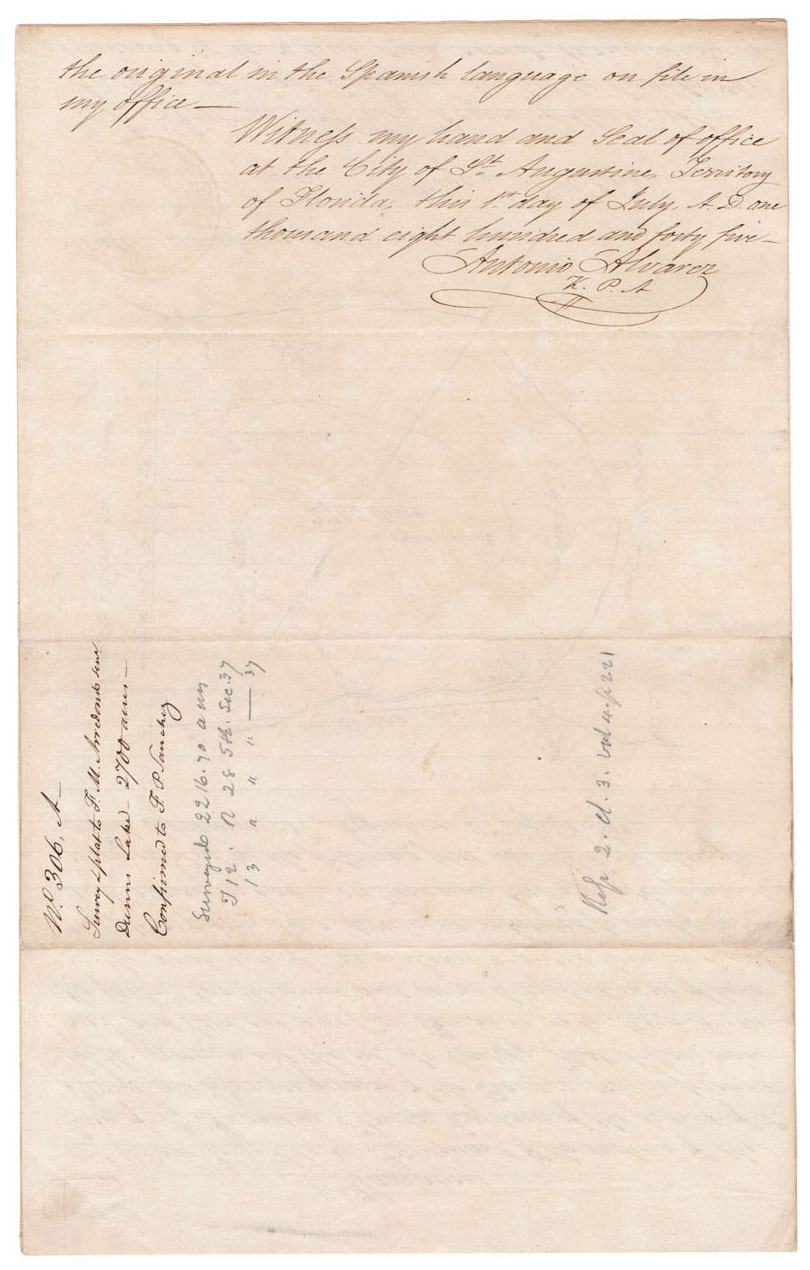 the original in the Spanish language on file in
my office—
Witness my hand and Seal of office
at the City of St. Augustine, Territory
of Florida, this 1st day of July, A. D. one
thousand eight hundred and forty five—
Antonio Alvarez
K. P. A
No. 306, A—
Survey & plat to F. M. Arredondo
Dunns Lake— 2700 acres—
Confirmed to F. P. Sanchez
Surveyed 2216.70
T 12. R 28 Sec. 37
13 " " " — 37
2. Cl. 3. vol 4. p 221